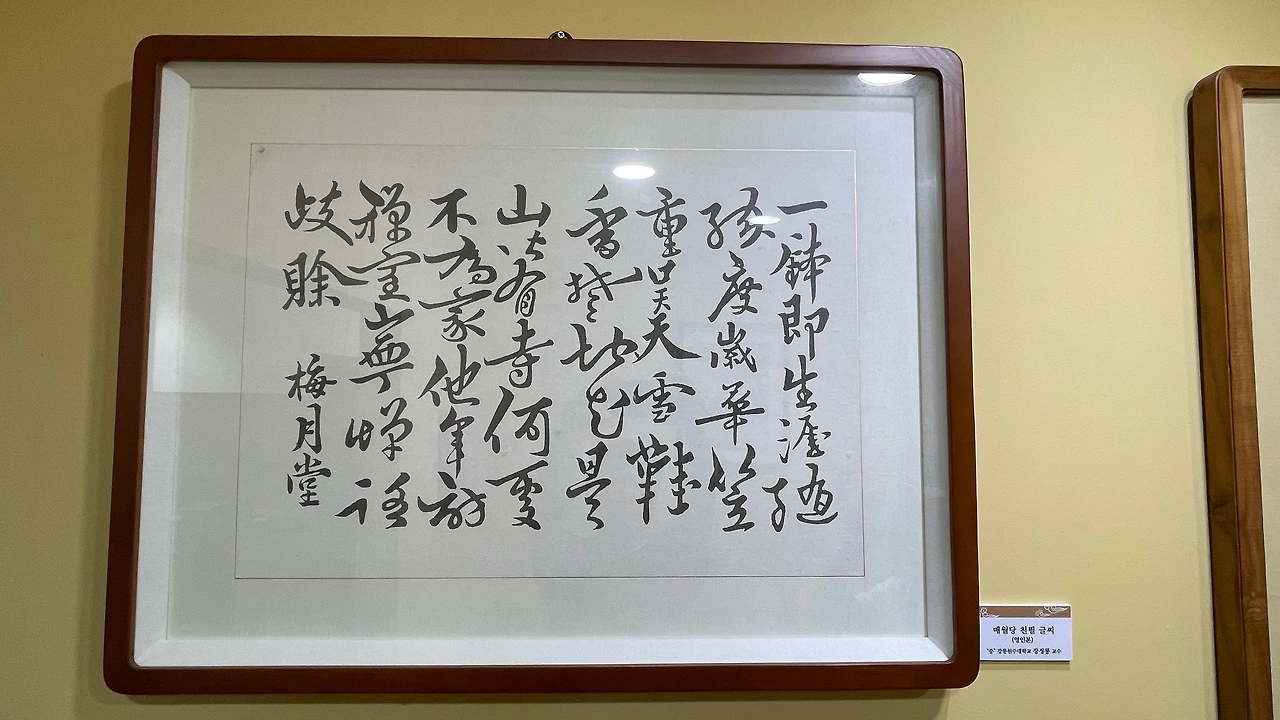 一鉢即生涯隨
緣度歲華笠
重吳天雪鞋
香楚地花是
山皆有寺何處
不為家他年訪
禪室寧憚路
歧賒 梅月堂
매월당 친필 글씨
(영인본)
"증" 강릉원주대학교 장정룡 교수